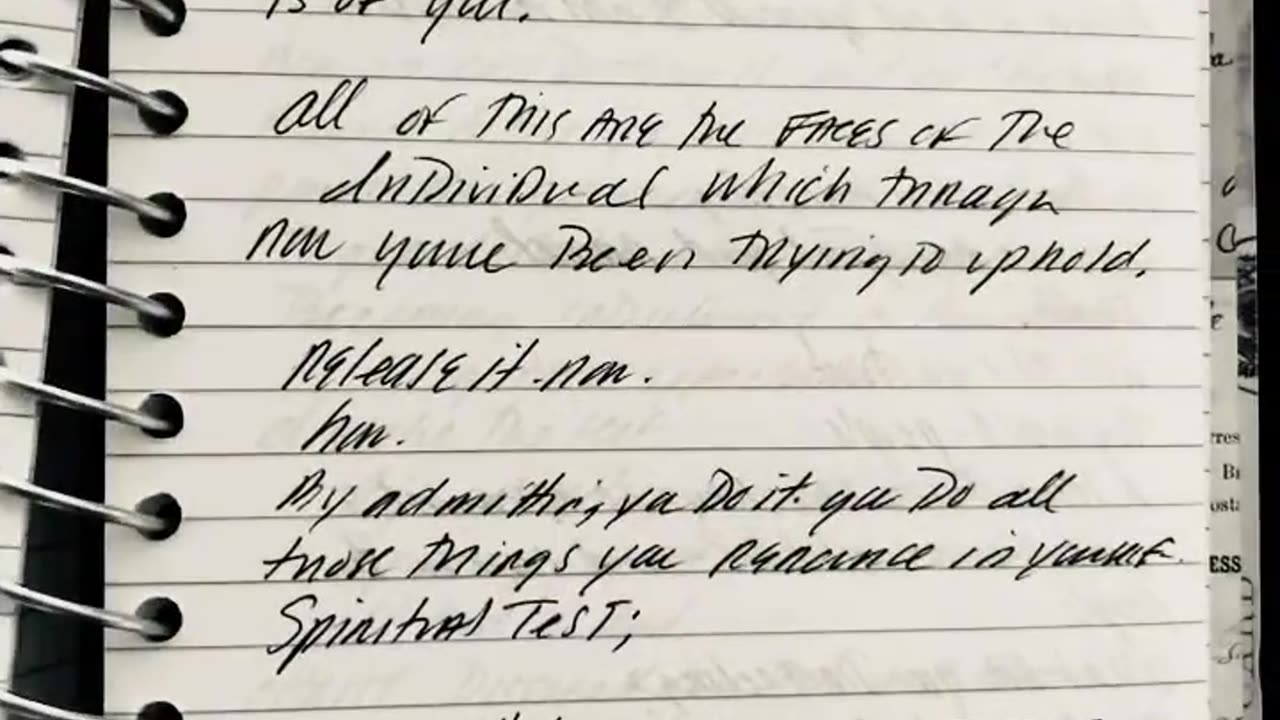 is of you.
all of this are the FACES of The
InDiviDual which through
now youve Been Trying to uphold.
Release it now.
now.
By admitting you Do it. you Do all
those things you Renounce in yourself.
Spiritual TEST;
rres
ESS